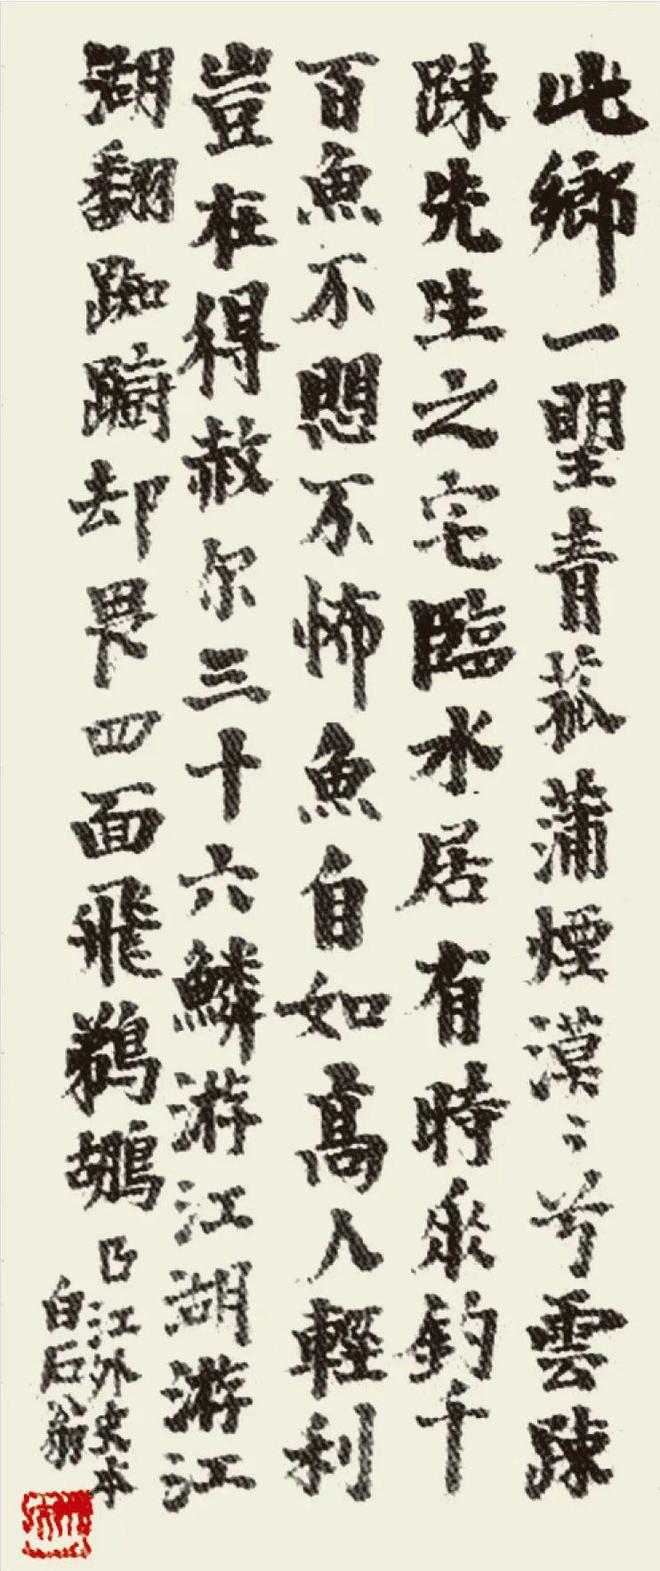 此鄉一望青菰蒲煙漠〻兮雲踈
踈先生之宅臨水居有時垂釣千
百魚不悶不怖魚自如高人輕利
豈在得赦尔三十六鱗游江湖游江
湖翻踟躕却畏四面飛鵜鶘
江外史本
白石翁